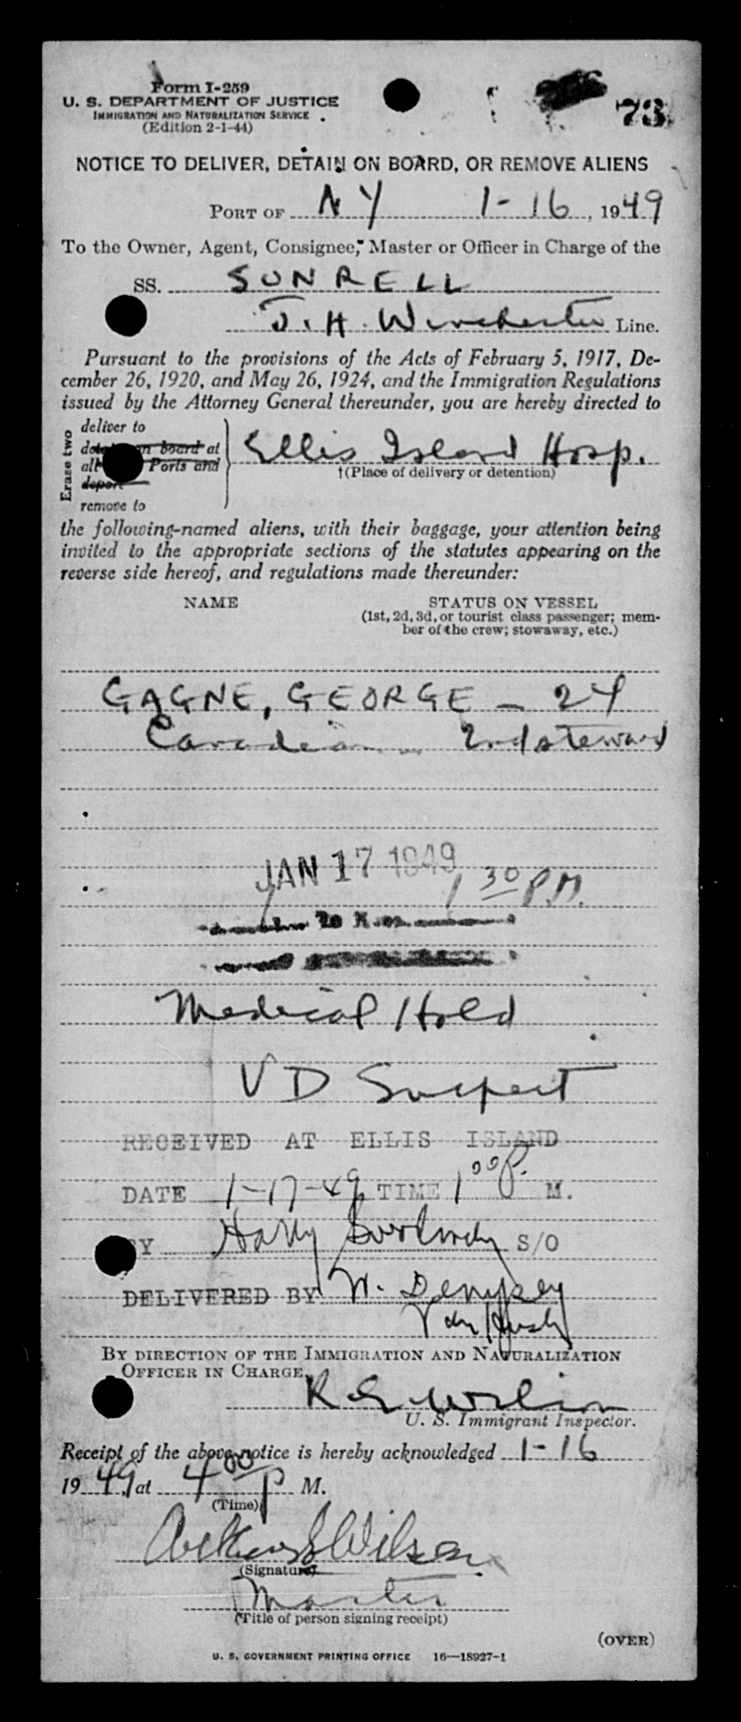 Form I-259
U. S. DEPARTMENT OF JUSTICE
IMMIGRATION AND NATURALIZATION SERVICE
(Edition 2-1-44)
73
NOTICE TO DELIVER, DETAIN ON BOARD, OR REMOVE ALIENS
PORT OF NY 1-16, 1949
To the Owner, Agent, Consignee, Master or Officer in Charge of the
SS. SUNRELL
J. H. Winchester Line.
Pursuant to the provisions of the Acts of February 5, 1917, De-
cember 26, 1920, and May 26, 1924, and the Immigration Regulations
issued by the Attorney General thereunder, you are hereby directed to
Erase two
deliver to
detain on board at
all Ports and
deport
remove to
Ellis Island Hosp.
†(Place of delivery or detention)
the following-named aliens, with their baggage, your attention being
invited to the appropriate sections of the statutes appearing on the
reverse side hereof, and regulations made thereunder:
NAME STATUS ON VESSEL
(1st, 2d, 3d, or tourist class passenger; mem-
ber of the crew; stowaway, etc.)
GAGNE, GEORGE - 24
Canadian 2nd steward
JAN 17 1949 1 30 P.M.
Medical Hold
VD Suspect
RECEIVED AT ELLIS ISLAND
DATE 1-17-49 TIME 1 00 P. M.
BY Harry S/O
DELIVERED BY W. Dempsey
BY DIRECTION OF THE IMMIGRATION AND NATURALIZATION
OFFICER IN CHARGE.
U. S. Immigrant Inspector.
Receipt of the above notice is hereby acknowledged 1-16
1949, at 4 00 P M.
(Time)
Wilson
(Signature)
Master
(Title of person signing receipt)
(OVER)
U. S. GOVERNMENT PRINTING OFFICE 16—18927-1